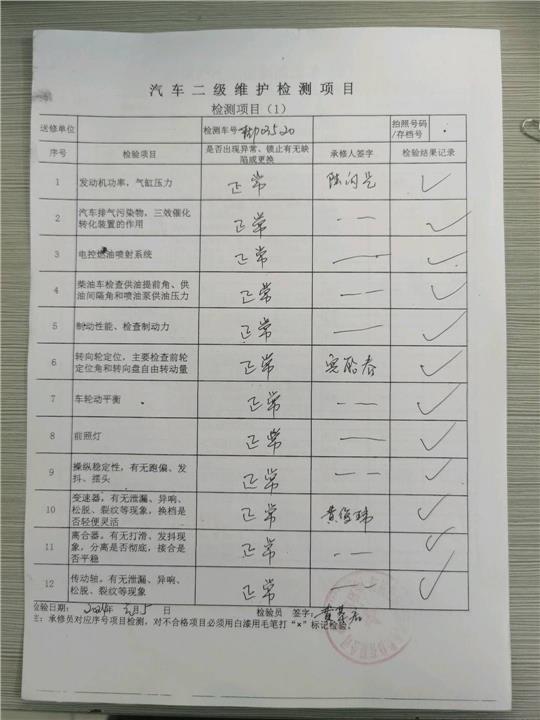 汽车二级维护检测项目
检测项目（1）
送修单位 检测车号 拍照号码/存档号
序号 检验项目 是否出现异常、锁止有无缺陷或更换 承修人签字 检验结果记录
1 发动机功率，气缸压力 正常 ✓
2 汽车排气污染物，三效催化转化装置的作用 正常 — — ✓
3 电控燃油喷射系统 正常 — — ✓
4 柴油车检查供油提前角、供油间隔角和喷油泵供油压力 正常 — — ✓
5 制动性能、检查制动力 正常 — — ✓
6 转向轮定位，主要检查前轮定位角和转向盘自由转动量 正常 ✓
7 车轮动平衡 正常 — — ✓
8 前照灯 正常 — — ✓
9 操纵稳定性，有无跑偏、发抖、摆头 正常 — — ✓
10 变速器，有无泄漏、异响、松脱、裂纹等现象，换档是否轻便灵活 正常 ✓
11 离合器，有无打滑、发抖现象，分离是否彻底，接合是否平稳 正常 — — ✓
12 传动轴，有无泄漏、异响、松脱、裂纹等现象 正常 — — ✓
检验日期： 年 月5日 检验员 签字：
注：承修员对应序号项目检测，对不合格项目必须用白漆用毛笔打“×”标记检验。